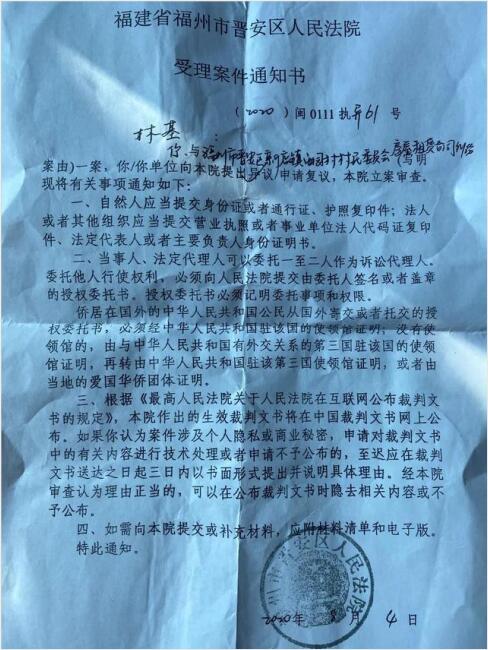 福建省福州市晋安区人民法院
受理案件通知书
（2020）闽0111执异61号
林基：
你与福州市晋安区村民委员会房屋租赁合同纠纷（写明
案由)一案，你/你单位向本院提出异议/申请复议，本院立案审查。
现将有关事项通知如下：
一、自然人应当提交身份证或者通行证、护照复印件；法人
或者其他组织应当提交营业执照或者事业单位法人代码证复印
件、法定代表人或者主要负责人身份证明书。
二、当事人、法定代理人可以委托一至二人作为诉讼代理人。
委托他人行使权利，必须向人民法院提交由委托人签名或者盖章
的授权委托书。授权委托书必须记明委托事项和权限。
侨居在国外的中华人民共和国公民从国外寄交或者托交的授
权委托书，必须经中华人民共和国驻该国的使领馆证明；没有使
领馆的，由与中华人民共和国有外交关系的第三国驻该国的使领
馆证明，再转由中华人民共和国驻该第三国使领馆证明，或者由
当地的爱国华侨团体证明。
三、根据《最高人民法院关于人民法院在互联网公布裁判文
书的规定》，本院作出的生效裁判文书将在中国裁判文书网上公
布。如果你认为案件涉及个人隐私或商业秘密，申请对裁判文书
中的有关内容进行技术处理或者申请不予公布的，至迟应在裁判
文书送达之日起三日内以书面形式提出并说明具体理由。经本院
审查认为理由正当的，可以在公布裁判文书时隐去相关内容或不
予公布。
四、如需向本院提交或补充材料，应附材料清单和电子版。
特此通知。
州市晋安区人民法院
2020年8月4日